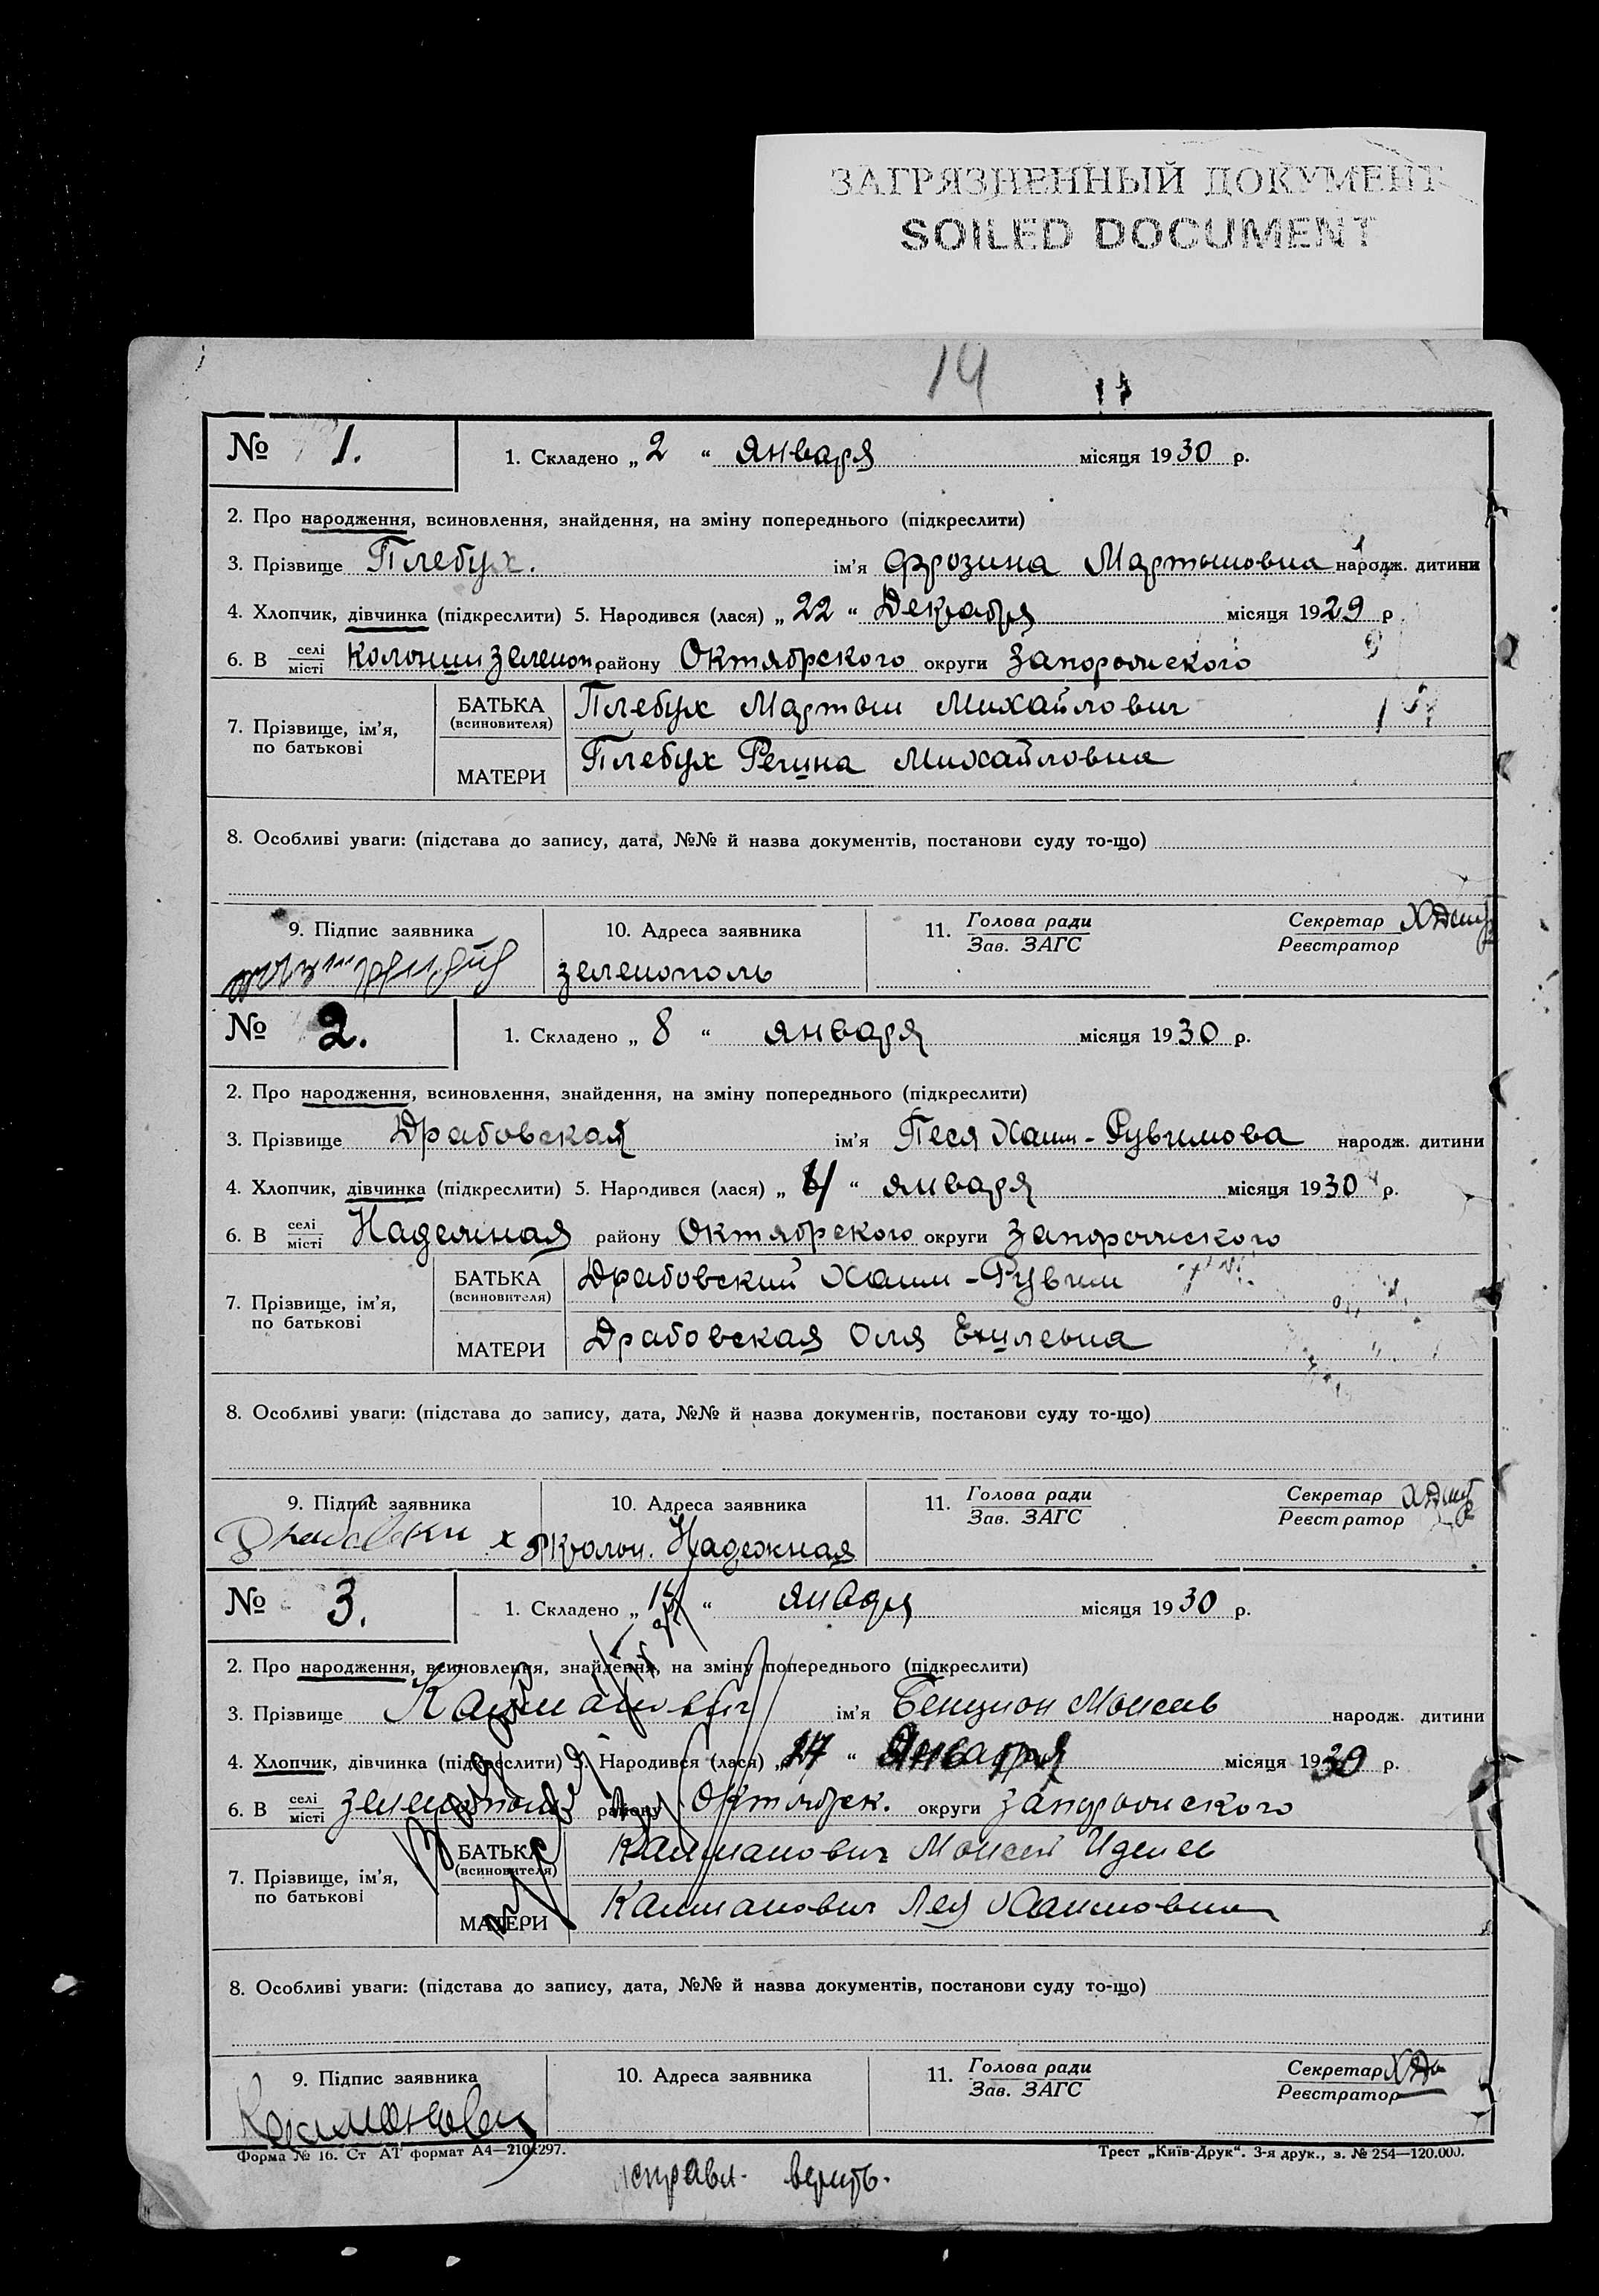 ЗАГРЯЗНЕННЫЙ ДОКУМЕНТ
SOILED DOCUMENT
14
№ 1.
1. Складено „ 2 “ января місяця 1930 р.
2. Про народження, всиновлення, знайдення, на зміну попереднього (підкреслити)
3. Прізвище Плебух. ім'я Фрозина Мартыновна народж. дитини
4. Хлопчик, дівчинка (підкреслити) 5. Народився (лася) „ 22 “ Декабря місяця 1929 р
6. В селі місті Колонии Зеленоп району Октябрского округи Запорожского
7. Прізвище, ім'я, по батькові
БАТЬКА (всиновителя) Плебух Мартын Михайлович
МАТЕРИ Плебух Регина Михайловна
8. Особливі уваги: (підстава до запису, дата, №№ й назва документів, постанови суду то-що)
9. Підпис заявника 10. Адреса заявника 11. Голова ради Зав. ЗАГС Секретар Реєстратор
Зеленополь
№ 2.
1. Складено „ 8 “ января місяця 1930 р.
2. Про народження, всиновлення, знайдення, на зміну попереднього (підкреслити)
3. Прізвище Драбовская ім'я Песя Хаим-Рувимова народж. дитини
4. Хлопчик, дівчинка (підкреслити) 5. Народився (лася) „ “ января місяця 1930 р.
6. В селі місті Надежная району Октябрского округи Запорожского
7. Прізвище, ім'я, по батькові
БАТЬКА (всиновителя) Драбовский Хаим-Рувим
МАТЕРИ Драбовская Оля Ехилевна
8. Особливі уваги: (підстава до запису, дата, №№ й назва документів, постанови суду то-що)
9. Підпис заявника 10. Адреса заявника 11. Голова ради Зав. ЗАГС Секретар Реєстратор
Колон. Надежная
№ 3.
1. Складено „ “ января місяця 1930 р.
2. Про народження, всиновлення, знайдення, на зміну попереднього (підкреслити)
3. Прізвище Калманович ім'я Бенцион Моисеев народж. дитини
4. Хлопчик, дівчинка (підкреслити) 5. Народився (лася) „ 17 “ Января місяця 1930 р.
6. В селі місті Зеленополь району Октябрск. округи Запорожского
7. Прізвище, ім'я, по батькові
БАТЬКА (всиновителя) Калманович Моисей
МАТЕРИ Калманович Лея Хаимовна
8. Особливі уваги: (підстава до запису, дата, №№ й назва документів, постанови суду то-що)
9. Підпис заявника 10. Адреса заявника 11. Голова ради Зав. ЗАГС Секретар Реєстратор
Форма № 16. Ст АТ формат А4—210×297.
Трест „Київ-Друк“. 3-я друк., з. № 254—120.000.
исправл. верить.